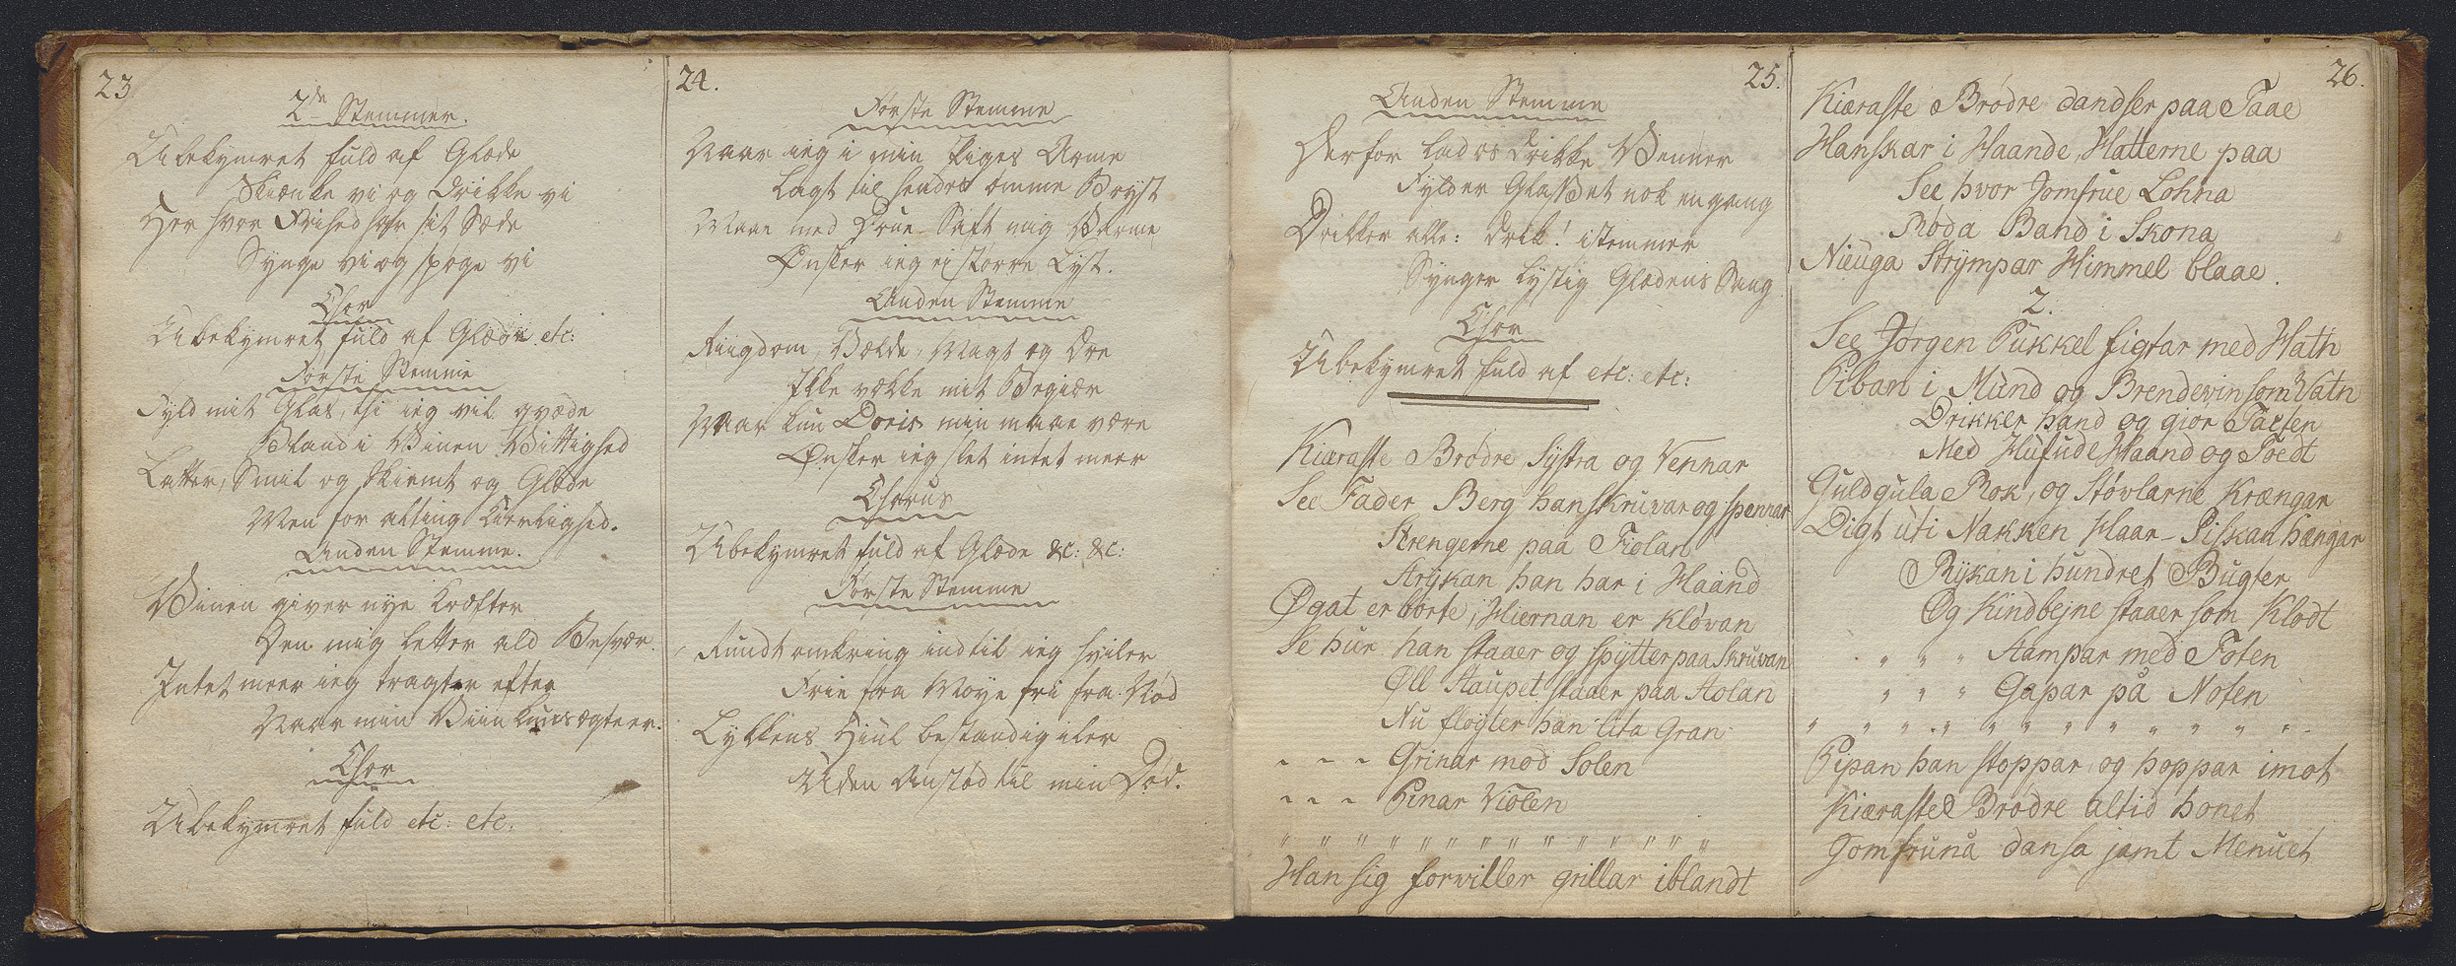 23
2de Stemmer.
Ubekymret fuld af Glæde
Skiænke vi og drikke vi
Her hvor Frihed har sit Sæde
Synge vi og spøge vi
Chor
Ubekymret fuld af Glæde etc:
Første Stemme
Fyld mit Glas, thi ieg vil qvæde
Bland i Viinen Vittighed
Latter, Smil og Skiemt og Glæde
Men for alting Kierlighed.
Anden Stemme.
Viinen giver nye Kræfter
Den mig letter ald Besvær.
Intet meer ieg tragter efter
Naar min Viin kuns ægte er.
Chor
Ubekymret fuld etc: etc:
24.
Første Stemme
Naar ieg i min Piges Arme
Lagt til hendes ømme Bryst
Maae med Drue-Saft mig Varme
Ønsker ieg ej større Lyst.
Anden Stemme
Riigdom, Vælde, Magt og Ære
Ikke vække mit Begiær
Naar kun Doris min maae være
Ønsker ieg slet intet meer
Chorus
Ubekymret fuld af Glæde &c: &c:
Første Stemme
Rundt omkring indtil ieg hviler
Frie fra Møye fri fra Nød
Lykkens Hiul bestandig iler
Uden Anstød til min Død.
25.
Anden Stemme
Derfor lad os drikke Venner
Fylder Glasset nok engang
Drikker alle: drik! istemmer
Synger lystig Glædens Sang
Chor
Ubekymret fuld af etc: etc:
Kiæraste Brødre Systra og Vennar
See Fader Berg han skruvar og spennar
Strengerne paa Fiolan
Strykan han har i Haand
Øgat er borte, Hiernan er kløvan
Se hur han staaer og spytter paa Skruvan
Øll Staupet staaer paa Stolan
Nu fløyter han lita Gran
- - - Grinar mod Solen
- - - Pinar Violen
" " " " " " " " " " " " " "
Han sig forviller grillar iblandt
26.
Kiæraste Brødre dandser paa Taae
Hanskar i Haande, Hatterne paa
See hvor Jomfrue Lohna
Røda Band i Skona
Nieuga Strympar Himmel blaae.
2.
See Jørgen Pukkel figtar med Hatn
Piban i Mund og Brendevin som Vatn
Drikker hand og giør Facten
Med Hufude Haand og Foedt
Guldgula Rok, og Støvlarne Krængar
Digt uti Nakken Haar-Piskan hængar
Rykan i hundret Bugter
Og Kindbejne staaer som Klodt
" " " Stampar med Foten
" " " Gapar på Noten
" " " " " " " " " " " "
Pipan han stoppar og hoppar imot
Kiæraste Brødre altid honet
Jomfruna dansa jamt Menuet